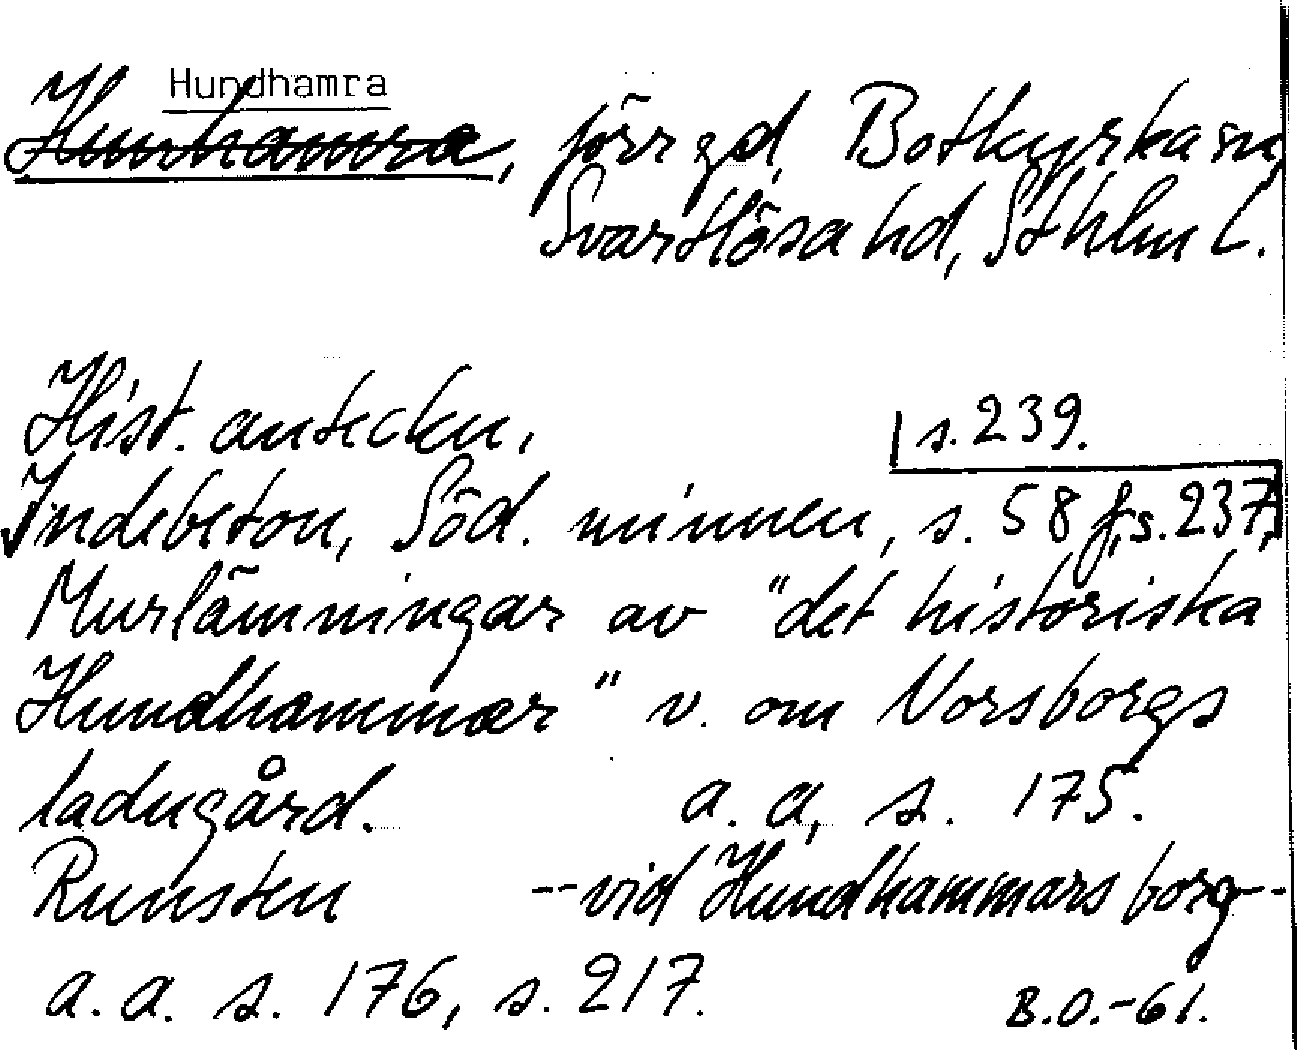 Hundhamra
Hunhamra, förr gd, Botkyrka sn,
Svartlösa hd, Sthlm L.
Hist. anteckn.
s. 239.
Indebetou, Söd. minnen, s. 58 f, s. 237,
Murlämningar av "det historiska
Hundhammar" v. om Norsborgs
ladugård. a. a, s. 175.
Runsten -- vid Hundhammars borg --
a. a. s. 176, s. 217.
B.O.-61.